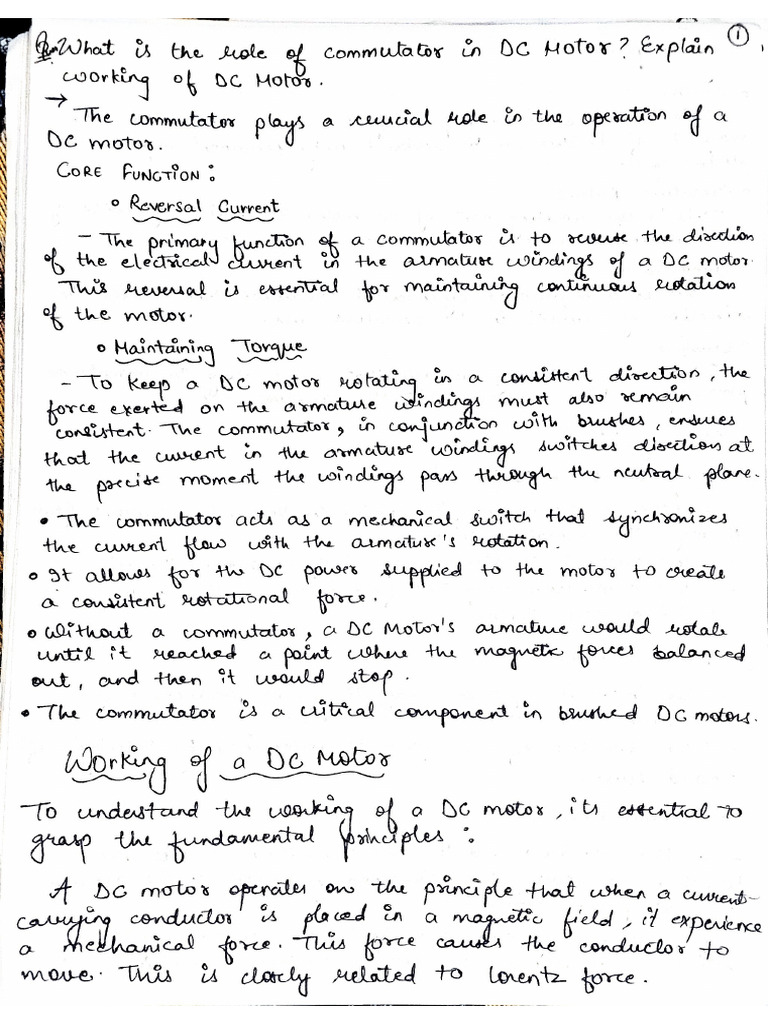 Qn. What is the role of commutator in DC Motor? Explain ①
working of DC Motor.
→ The commutator plays a crucial role in the operation of a
DC motor.
CORE FUNCTION :
• Reversal Current
- The primary function of a commutator is to reverse the direction
of the electrical current in the armature windings of a DC motor.
This reversal is essential for maintaining continuous rotation
of the motor.
• Maintaining Torque
- To keep a DC motor rotating in a consistent direction, the
force exerted on the armature windings must also remain
consistent. The commutator, in conjunction with brushes, ensures
that the current in the armature windings switches direction at
the precise moment the windings pass through the neutral plane.
• The commutator acts as a mechanical switch that synchronizes
the current flow with the armature's rotation.
• It allows for the DC power supplied to the motor to create
a consistent rotational force.
• Without a commutator, a DC Motor's armature would rotate
until it reached a point where the magnetic forces balanced
out, and then it would stop.
• The commutator is a critical component in brushed DC motors.
Working of a DC Motor
To understand the working of a DC motor, its essential to
grasp the fundamental principles :
A DC motor operates on the principle that when a current-
carrying conductor is placed in a magnetic field, it experience
a mechanical force. This force causes the conductor to
move. This is closely related to Lorentz force.